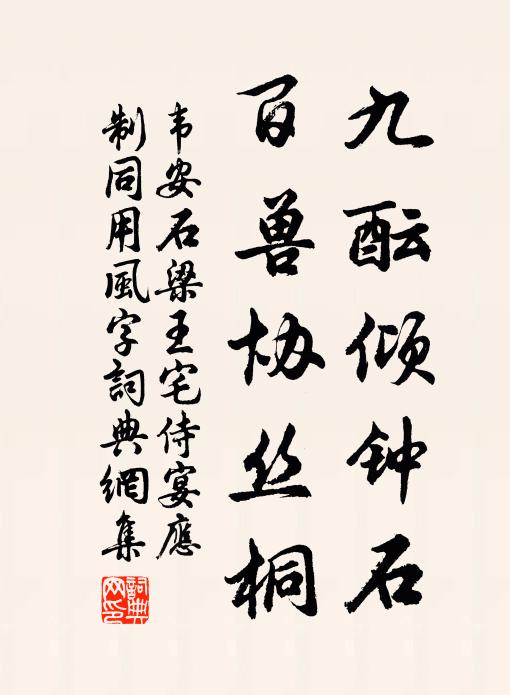 九酝倾钟石
百兽协丝桐
韦安石梁王宅侍宴應
制同用風字詞典網集
詞典网印